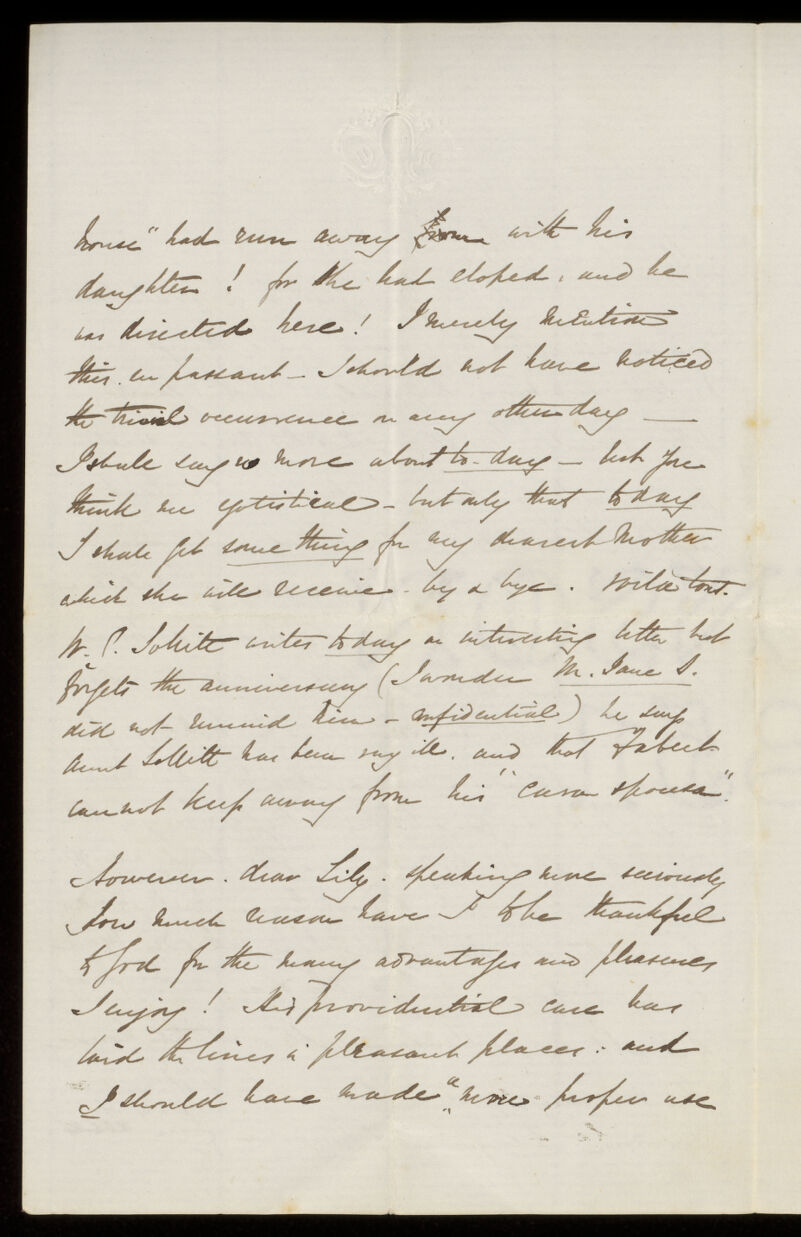 house" had run away from with his
daughter! for she had eloped, and he
was directed here! I merely mention
this en passant – I should not have noticed
the trivial occurrence on any other day —
I shall say no more about to-day – lest you
think me egotistical – but only that today
I shall get some thing for my dearest Mother
which she will receive by & bye. voila tout.
W. P. writes today an interesting letter but
forgets the anniversary (I wonder M. Jane S.
did not remind him – confidential) he says
Aunt has been very ill. and that
cannot keep away from his "cara sposa".
However. dear Lily. speaking more seriously
How much reason have I to be thankful
to God for the many advantages and pleasures
I enjoy! His providential care has
laid the lines in pleasant places: and
I should have made "a more proper use